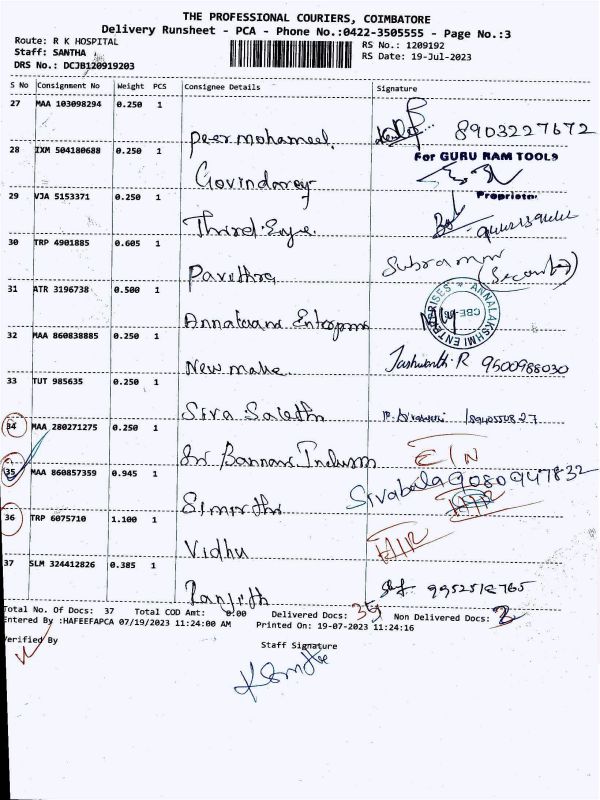 THE PROFESSIONAL COURIERS, COIMBATORE
Delivery Runsheet - PCA - Phone No.:0422-3505555 - Page No.:3
Route: R K HOSPITAL
RS No.: 1209192
Staff: SANTHA
RS Date: 19-Jul-2023
DRS No.: DCJB120919203
S No Consignment No Weight PCS Consignee Details Signature
27 MAA 103098294 0.250 1
Peer mohameed. 8903227672
28 IXM 504180688 0.250 1 For GURU RAM TOOLS
Govindaraj
29 VJA 5153371 0.250 1 Proprietor
Third Eye.
30 TRP 4901885 0.605 1
Pavithra Subramani (Security)
31 ATR 3196738 0.500 1
ANNALAKSHMI ENTERPRISES CBE
32 MAA 860838885 0.250 1
New make Jashwanth.R 9500988030
33 TUT 985635 0.250 1
Siva
34 MAA 280271275 0.250 1
Sri E/N
35 MAA 860857359 0.945 1 Sivabala 9080947832
36 TRP 6075710 1.100 1
Vidhu
37 SLM 324412826 0.385 1
Ranjith
Total No. Of Docs: 37 Total COD Amt: 0.00 Delivered Docs: 35 Non Delivered Docs: 2
Entered By :HAFEEFAPCA 07/19/2023 11:24:00 AM Printed On: 19-07-2023 11:24:16
Verified By Staff Signature